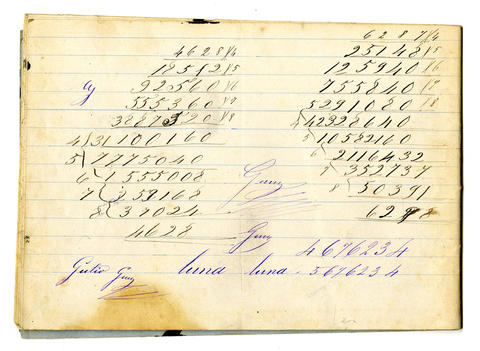 4628 4
18512 5
92560 6
555360 7
3887520 8
4 31100160
5 7775040
6 1555008
7 259168
8 37024
4628
6287 4
25148 5
125940 6
755840 7
5291080 8
4 42328640
5 10582160
6 2116432
7 352737
8 50391
6298
4676234
luna luna - 5676234